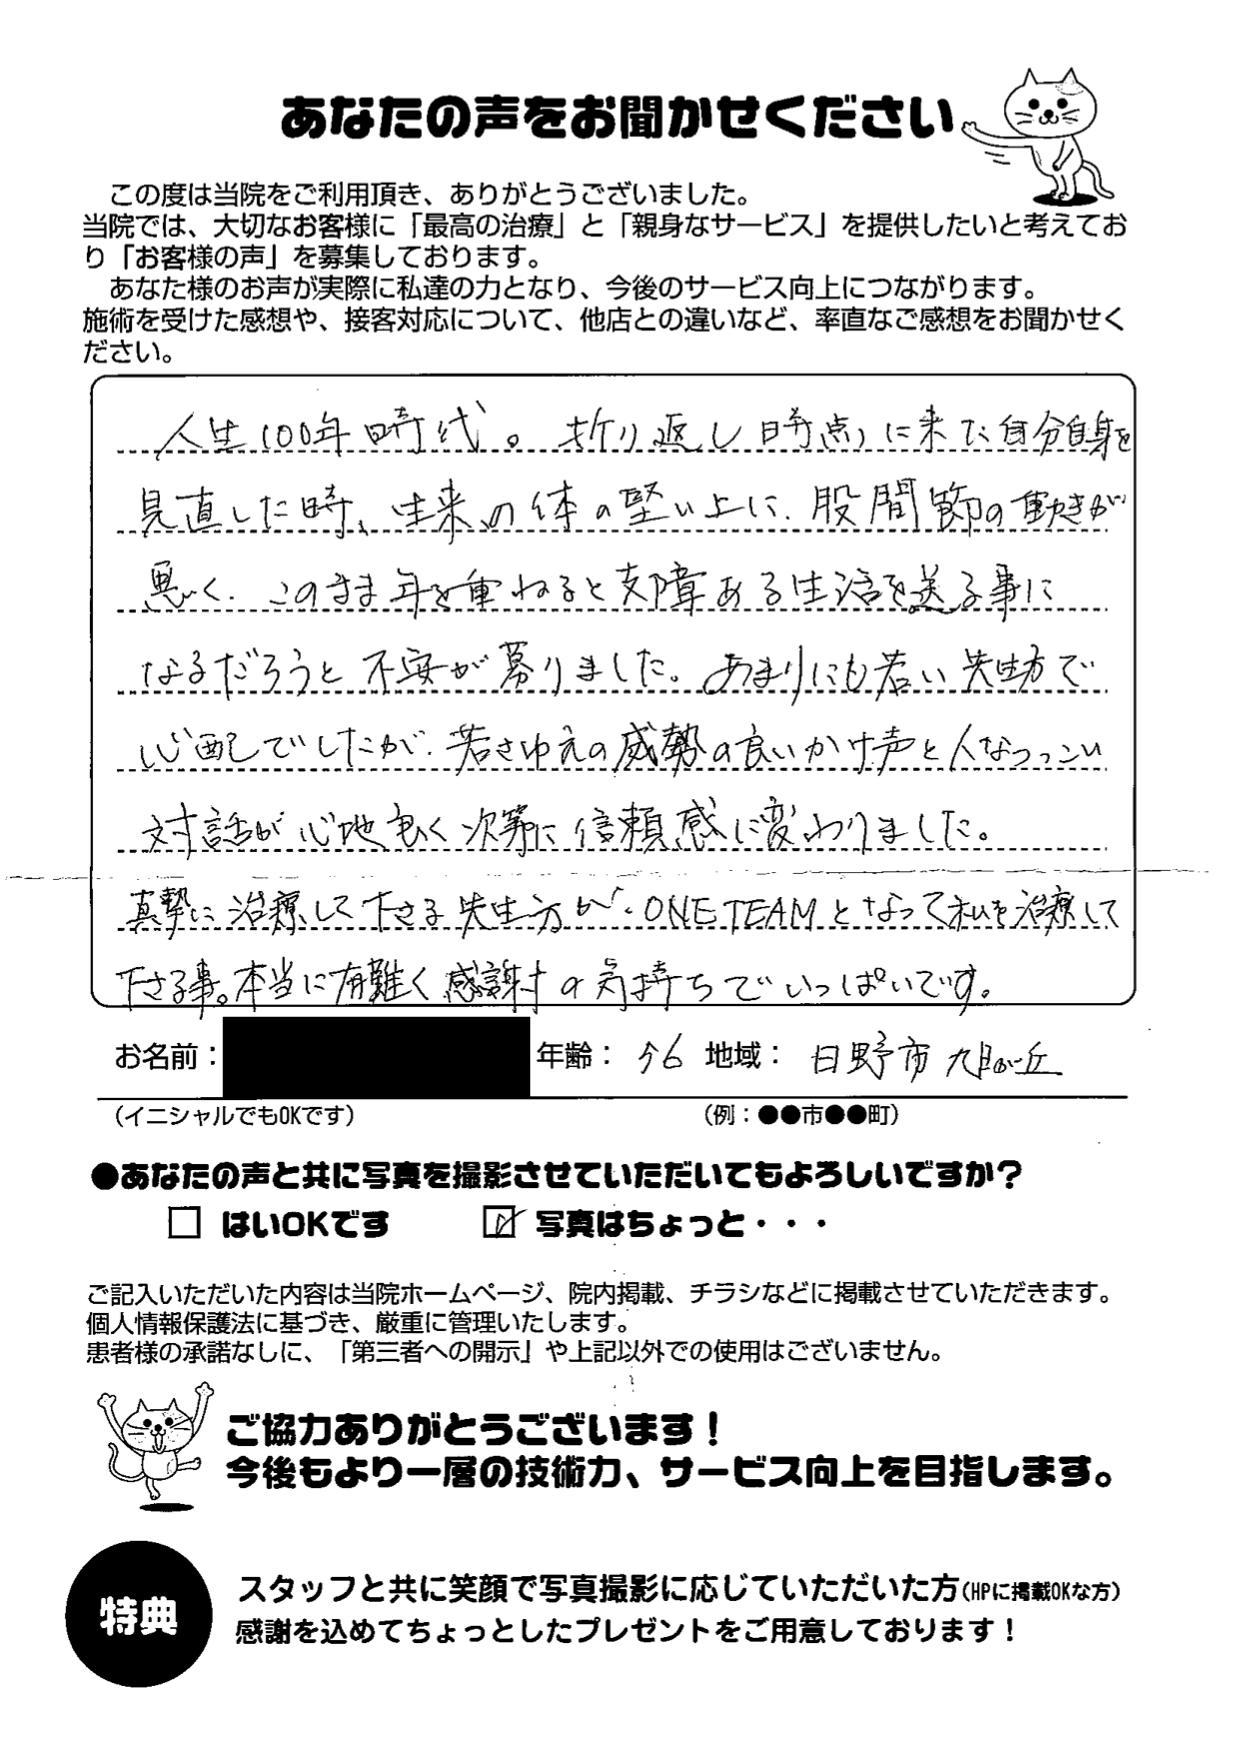 あなたの声をお聞かせください
この度は当院をご利用頂き、ありがとうございました。
当院では、大切なお客様に「最高の治療」と「親身なサービス」を提供したいと考えてお
り「お客様の声」を募集しております。
あなた様のお声が実際に私達の力となり、今後のサービス向上につながります。
施術を受けた感想や、接客対応について、他店との違いなど、率直なご感想をお聞かせく
ださい。
人生100年時代。折り返し時点に来た自分自身を
見直した時、生来の体の堅い上に、股関節の動きが
悪く、このまま年を重ねると支障ある生活を送る事に
なるだろうと不安が募りました。あまりにも若い先生方で
心配でしたが、若さゆえの威勢の良いかけ声と人なつっこい
対話が心地良く次第に信頼感に変わりました。
真摯に治療して下さる先生方が、ONE TEAMとなって私を治療して
下さる事。本当に有難く感謝の気持ちでいっぱいです。
お名前：
年齢： 56 地域： 日野市 旭が丘
（イニシャルでもOKです）
（例：●●市●●町）
●あなたの声と共に写真を撮影させていただいてもよろしいですか？
□ はいOKです ☑ 写真はちょっと・・・
ご記入いただいた内容は当院ホームページ、院内掲載、チラシなどに掲載させていただきます。
個人情報保護法に基づき、厳重に管理いたします。
患者様の承諾なしに、「第三者への開示」や上記以外での使用はございません。
ご協力ありがとうございます！
今後もより一層の技術力、サービス向上を目指します。
特典
スタッフと共に笑顔で写真撮影に応じていただいた方(HPに掲載OKな方)
感謝を込めてちょっとしたプレゼントをご用意しております！